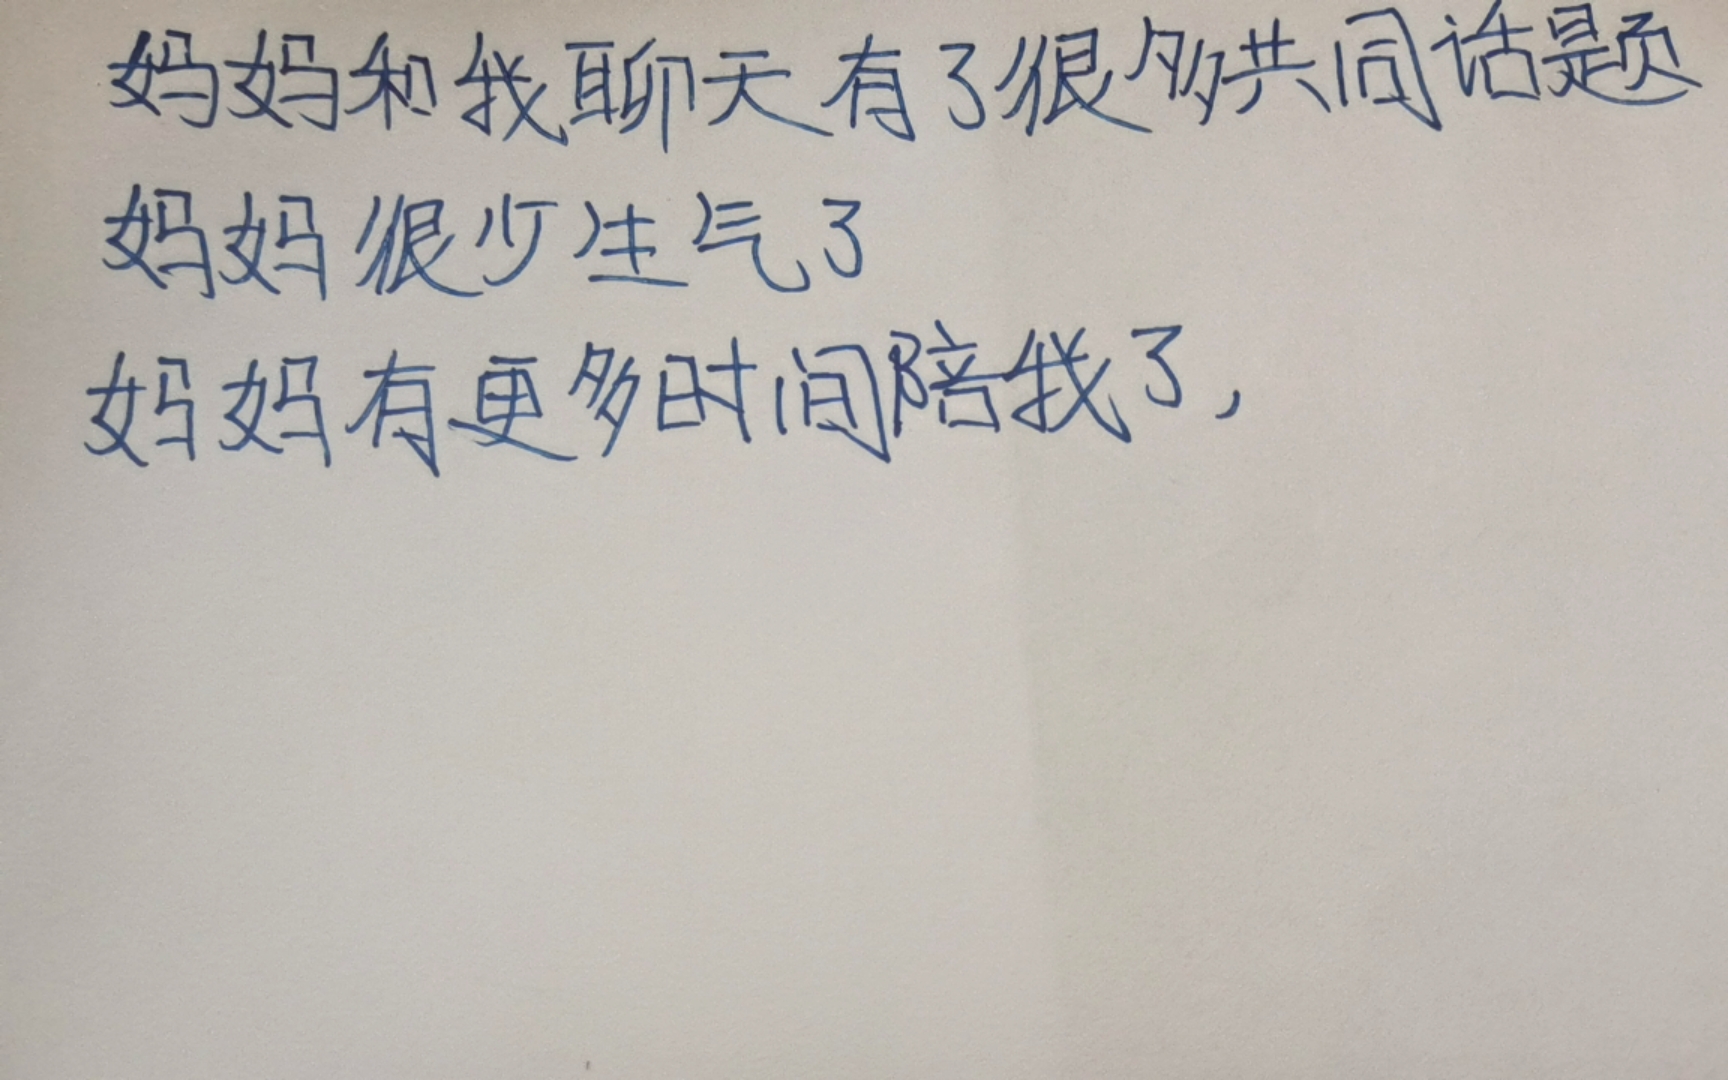 妈妈和我聊天有了很多共同话题
妈妈很少生气了
妈妈有更多时间陪我了,